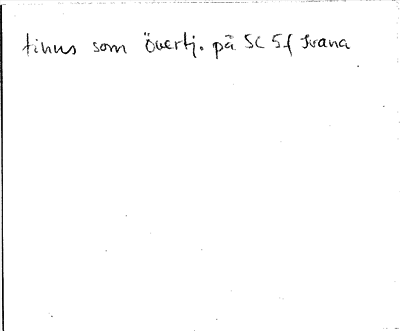 tinus som övertj. på SC 5f Svana